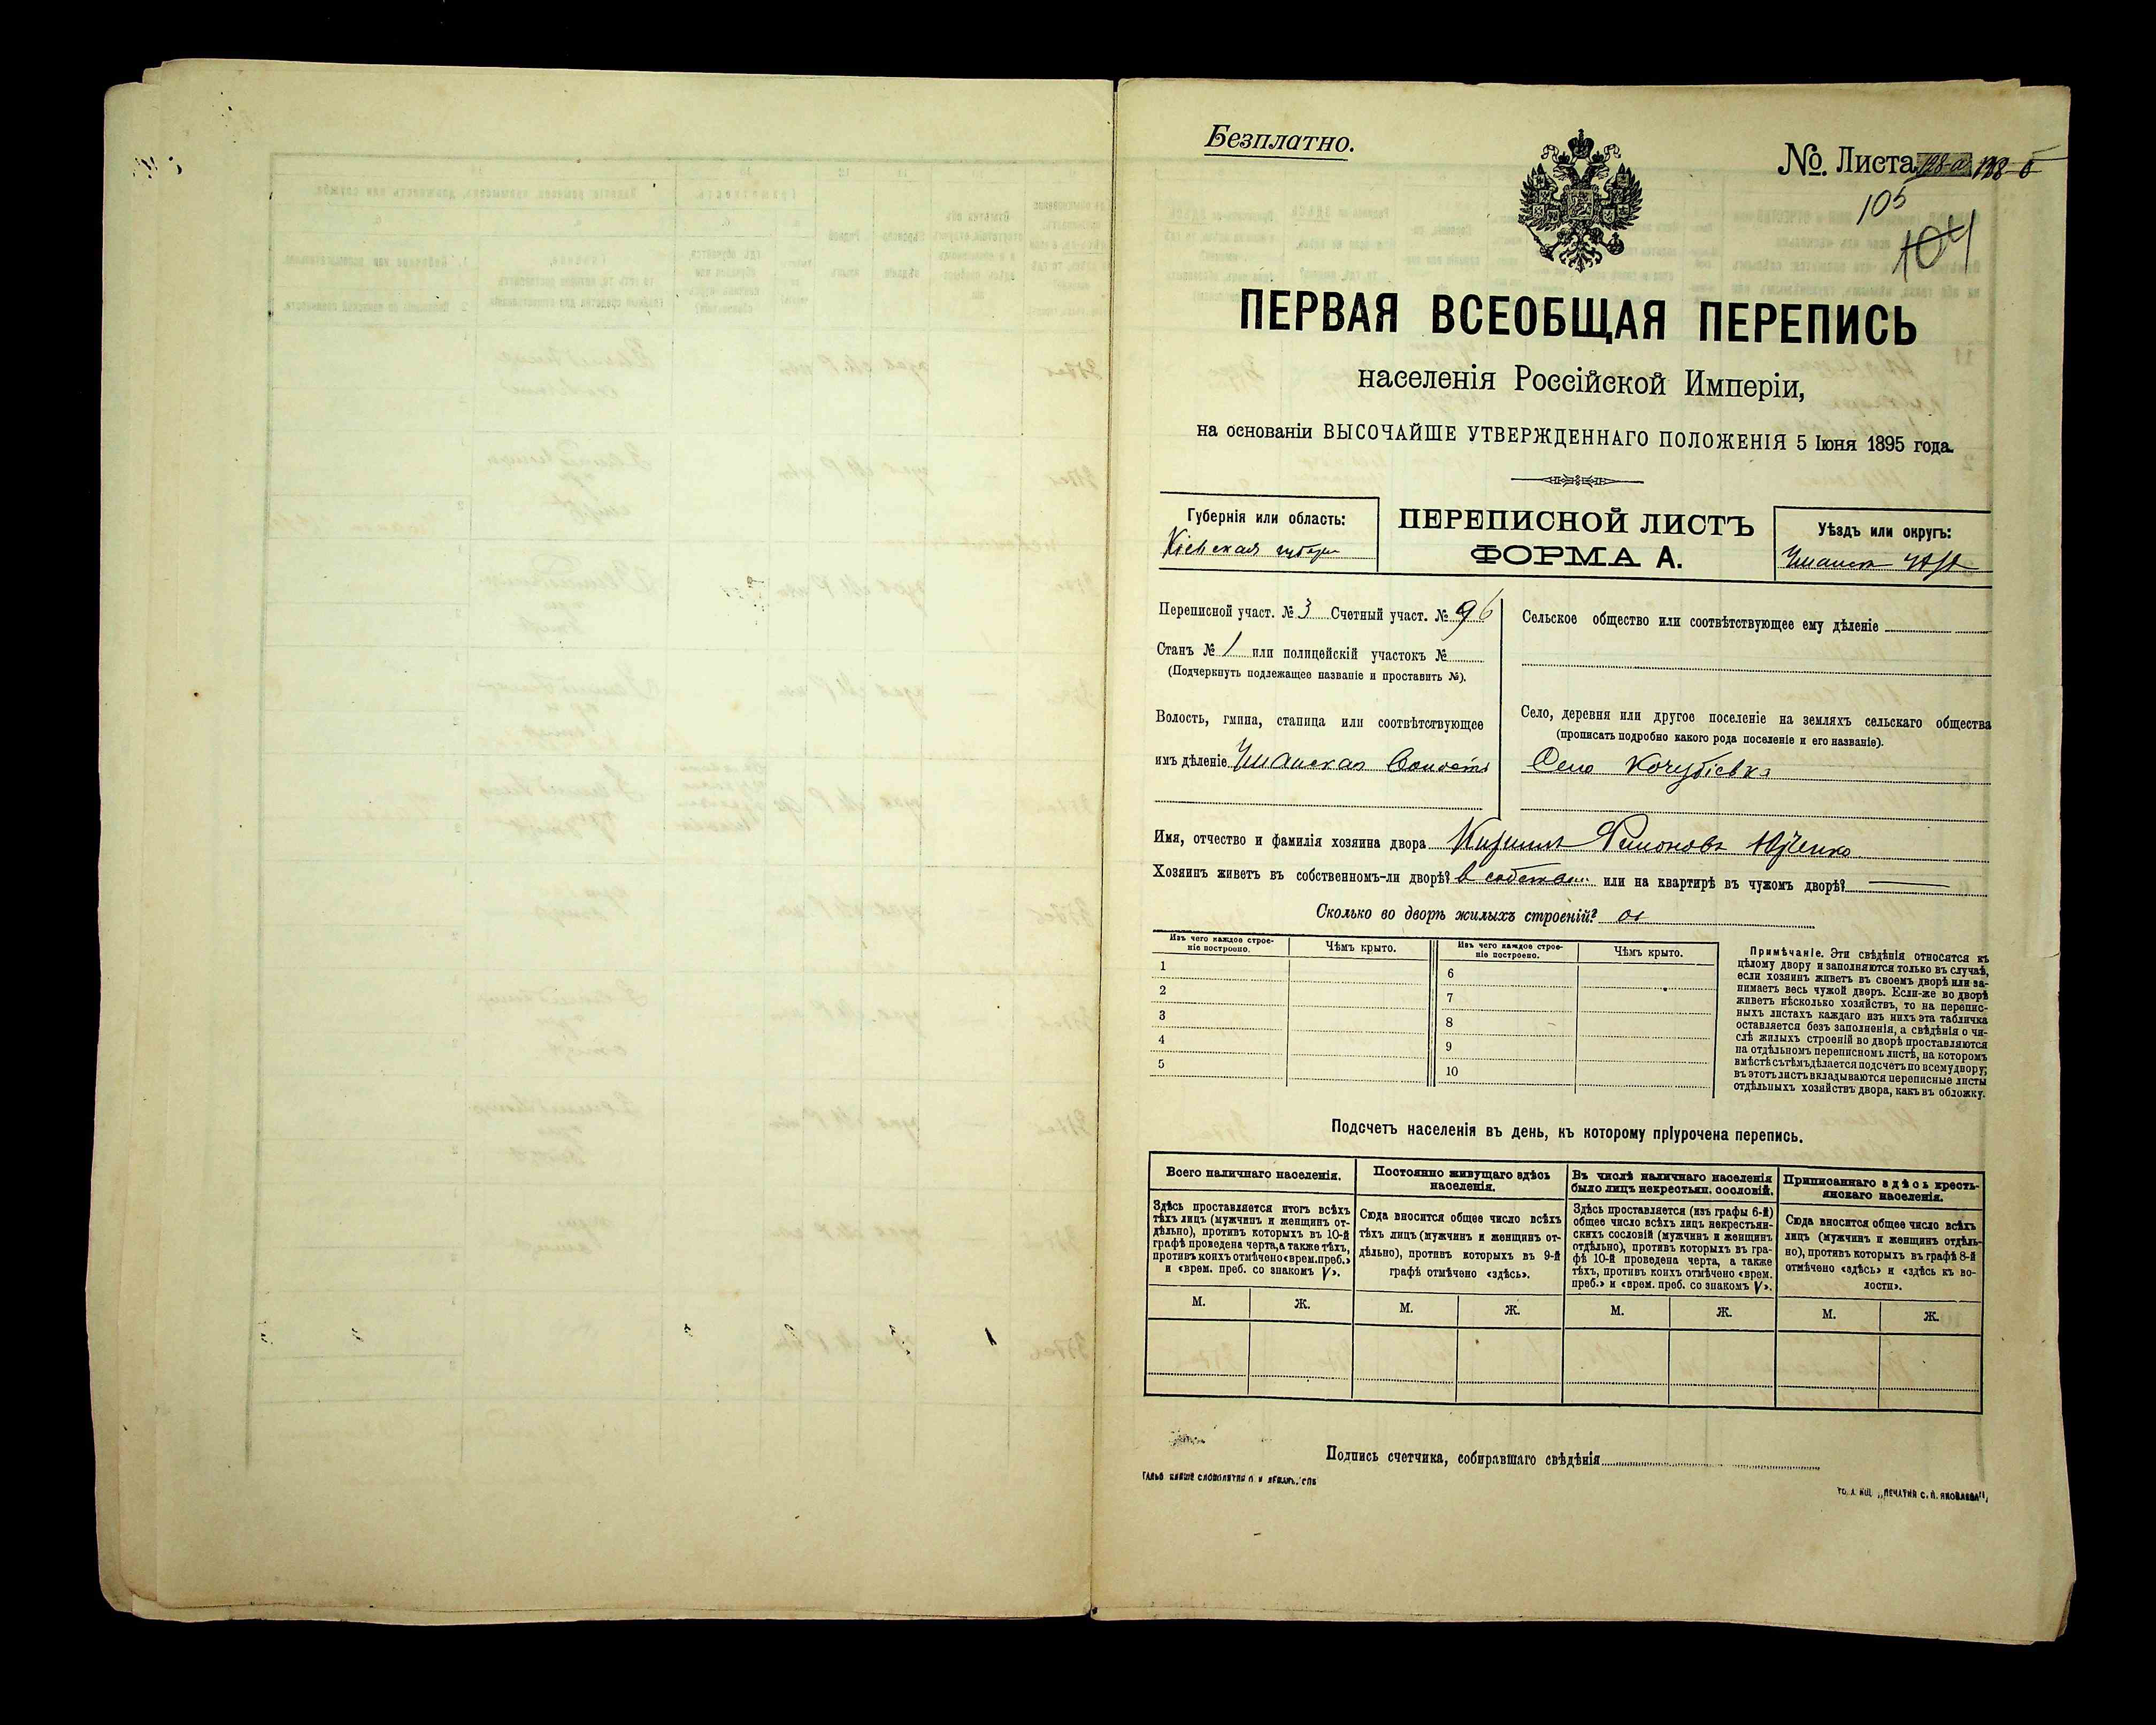 Безплатно.
№. Листа 128-б
105
104
ПЕРВАЯ ВСЕОБЩАЯ ПЕРЕПИСЬ
населенія Россійской Имперіи,
на основаніи ВЫСОЧАЙШЕ УТВЕРЖДЕННАГО ПОЛОЖЕНІЯ 5 Іюня 1895 года.
Губернія или область:
Кіевская губерн
ПЕРЕПИСНОЙ ЛИСТЪ
ФОРМА А.
Уѣздъ или округъ:
Уманск
Переписной участ. № 3 Счетный участ. № 96
Станъ № 1 или полицейскій участокъ №
(Подчеркнуть подлежащее названіе и проставить №).
Волость, гмина, станица или соотвѣтствующее
имъ дѣленіе Уманская Волость
Сельское общество или соотвѣтствующее ему дѣленіе
Село, деревня или другое поселеніе на земляхъ сельскаго общества
(прописать подробно какого рода поселеніе и его названіе).
Село Кочубіевка
Имя, отчество и фамилія хозяина двора Кирилъ
Хозяинъ живетъ въ собственномъ-ли дворѣ? в собствен или на квартирѣ въ чужомъ дворѣ?
Сколько во дворѣ жилыхъ строеній?
Изъ чего каждое строе-
ніе построено.
Чѣмъ крыто.
Изъ чего каждое строе-
ніе построено.
Чѣмъ крыто.
1
2
3
4
5
6
7
8
9
10
Примѣчаніе. Эти свѣдѣнія относятся къ
цѣлому двору и заполняются только въ случаѣ,
если хозяинъ живетъ въ своемъ дворѣ или за-
нимаетъ весь чужой дворъ. Если-же во дворѣ
живетъ нѣсколько хозяйствъ, то на перепис-
ныхъ листахъ каждаго изъ нихъ эта табличка
оставляется безъ заполненія, а свѣдѣнія о чи-
слѣ жилыхъ строеній во дворѣ проставляются
на отдѣльномъ переписномъ листѣ, на которомъ
вмѣстѣ съ тѣмъ дѣлается подсчетъ по всему двору;
въ этотъ листъ вкладываются переписные листы
отдѣльныхъ хозяйствъ двора, какъ въ обложку.
Подсчетъ населенія въ день, къ которому пріурочена перепись.
Всего наличнаго населенія.
Здѣсь проставляется итогъ всѣхъ
тѣхъ лицъ (мужчинъ и женщинъ от-
дѣльно), противъ которыхъ въ 10-й
графѣ проведена черта, а также тѣхъ,
противъ коихъ отмѣчено «врем. преб.»
и «врем. преб. со знакомъ V».
Постоянно живущаго здѣсь
населенія.
Сюда вносится общее число всѣхъ
тѣхъ лицъ (мужчинъ и женщинъ от-
дѣльно), противъ которыхъ въ 9-й
графѣ отмѣчено «здѣсь».
Въ числѣ наличнаго населенія
было лицъ некрестьян. сословій.
Здѣсь проставляется (изъ графы 6-й)
общее число всѣхъ лицъ некрестьян-
скихъ сословій (мужчинъ и женщинъ
отдѣльно), противъ которыхъ въ гра-
фѣ 10-й проведена черта, а также
тѣхъ, противъ коихъ отмѣчено «врем.
преб.» и «врем. преб. со знакомъ V».
Приписаннаго здѣсь кресть-
янскаго населенія.
Сюда вносится общее число всѣхъ
лицъ (мужчинъ и женщинъ отдѣль-
но), противъ которыхъ въ графѣ 8-й
отмѣчено «здѣсь» и «здѣсь къ во-
лости».
М. Ж. М. Ж. М. Ж. М. Ж.
Подпись счетчика, собиравшаго свѣдѣнія
„ПЕЧАТНЯ С. П. ЯКОВЛЕВА“,